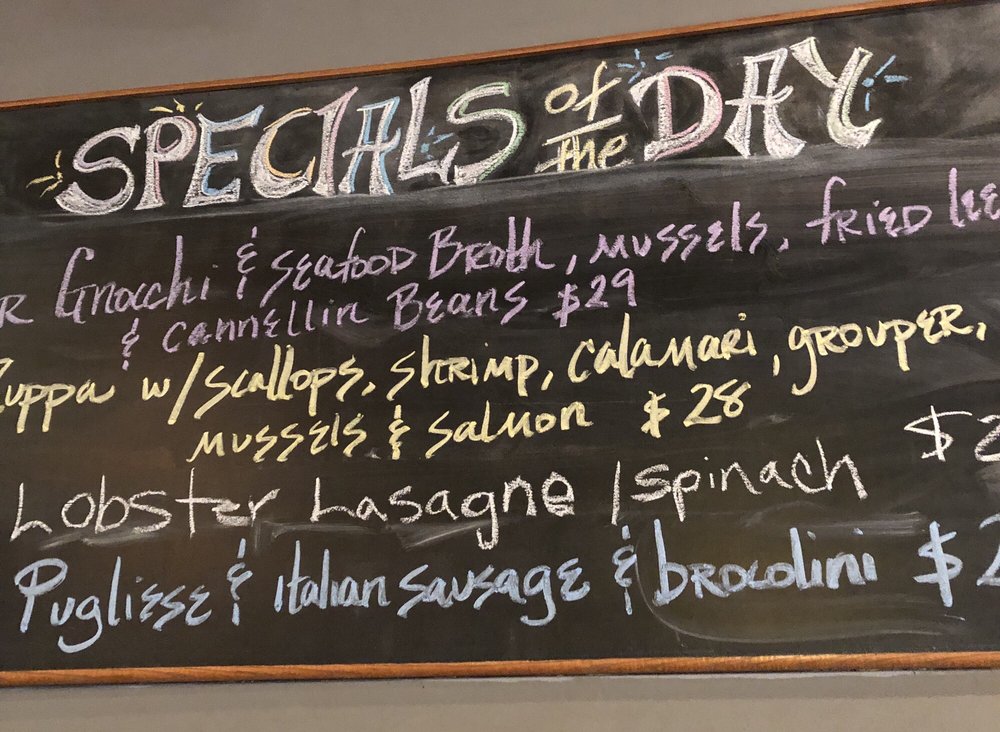 SPECIALS of the DAY
Gnocchi & Seafood Broth, mussels, fried
& cannellin Beans $29
Zuppa w/scallops, shrimp, calamari, grouper,
mussels & salmon $28
Lobster Lasagne /spinach $2
Pugliese & italian sausage & brocolini $2